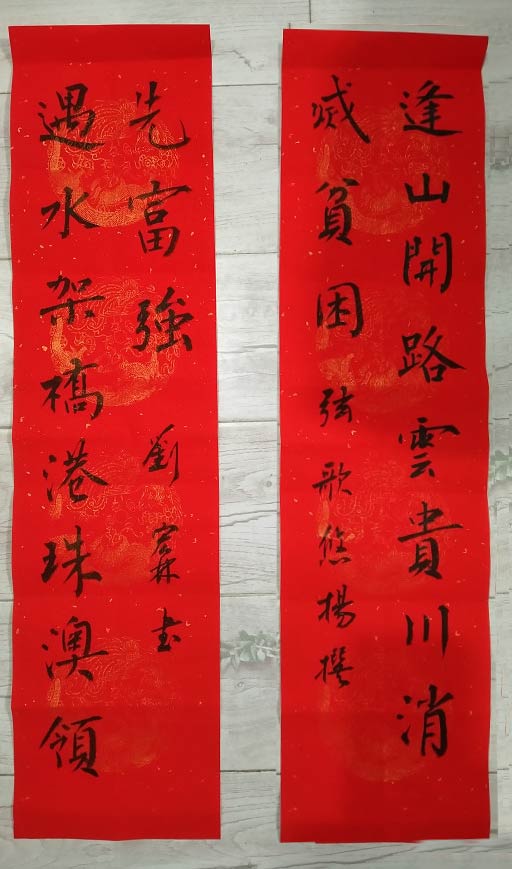 逢山開路雲貴川消
滅貧困 弦歌悠揚撰
遇水架橋港珠澳領
先富強 劉霖書